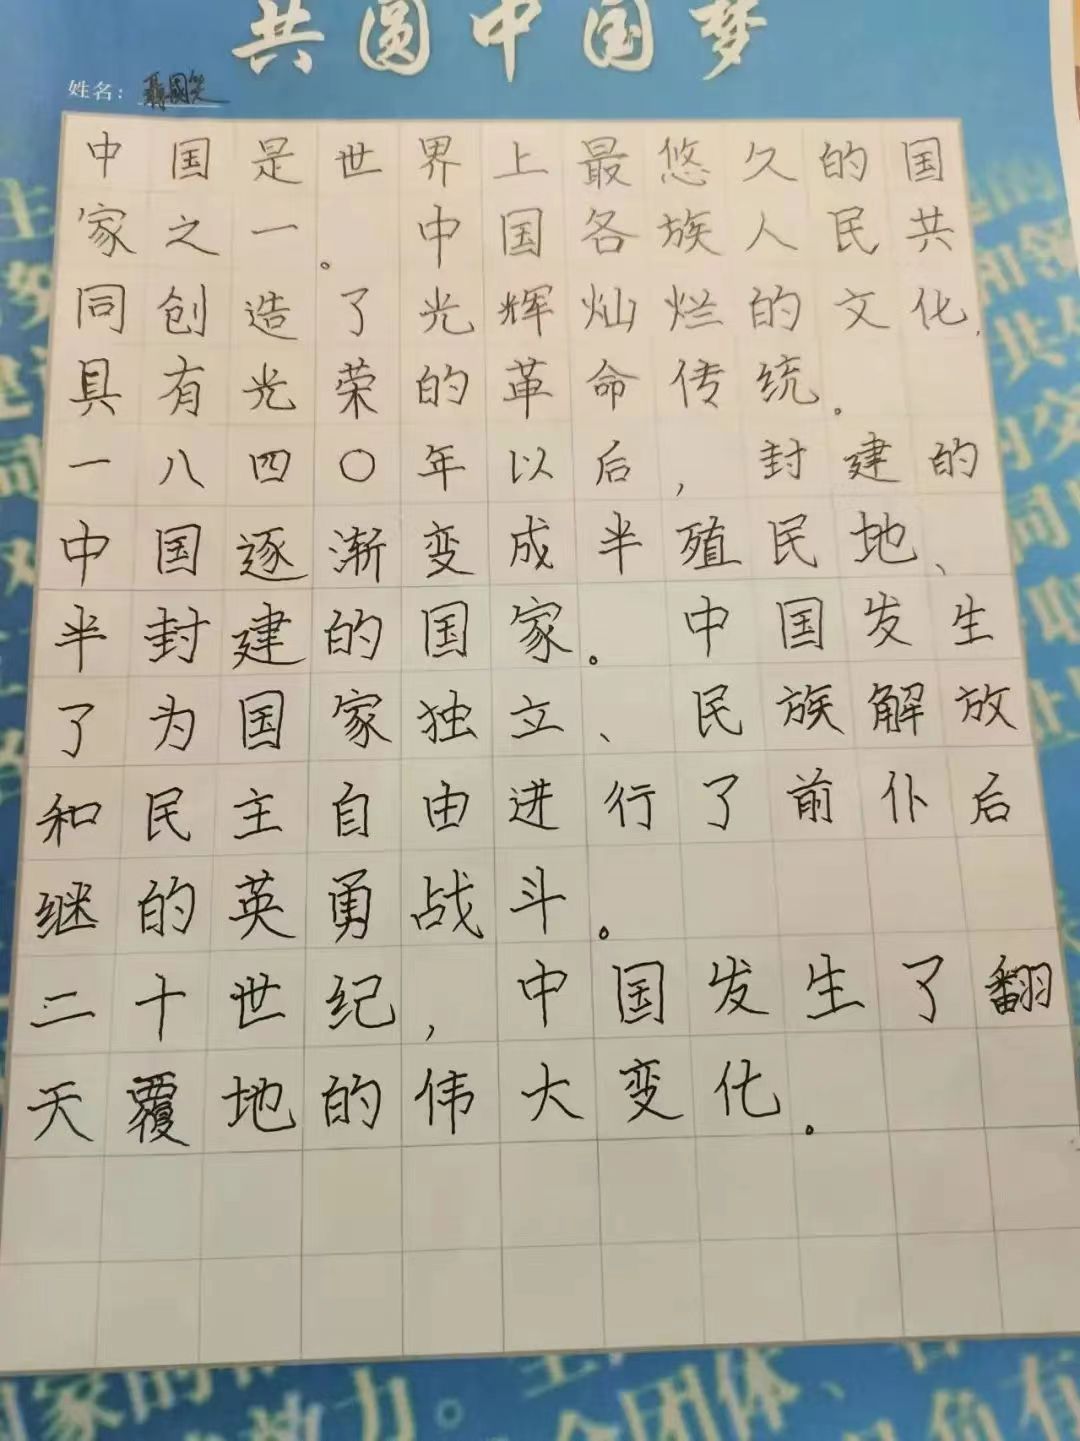 共圆中国梦
姓名：
中国是世界上最悠久的国
家之一。中国各族人民共
同创造了光辉灿烂的文化，
具有光荣的革命传统。
一八四〇年以后，封建的
中国逐渐变成半殖民地、
半封建的国家。中国发生
了为国家独立、民族解放
和民主自由进行了前仆后
继的英勇战斗。
二十世纪，中国发生了翻
天覆地的伟大变化。